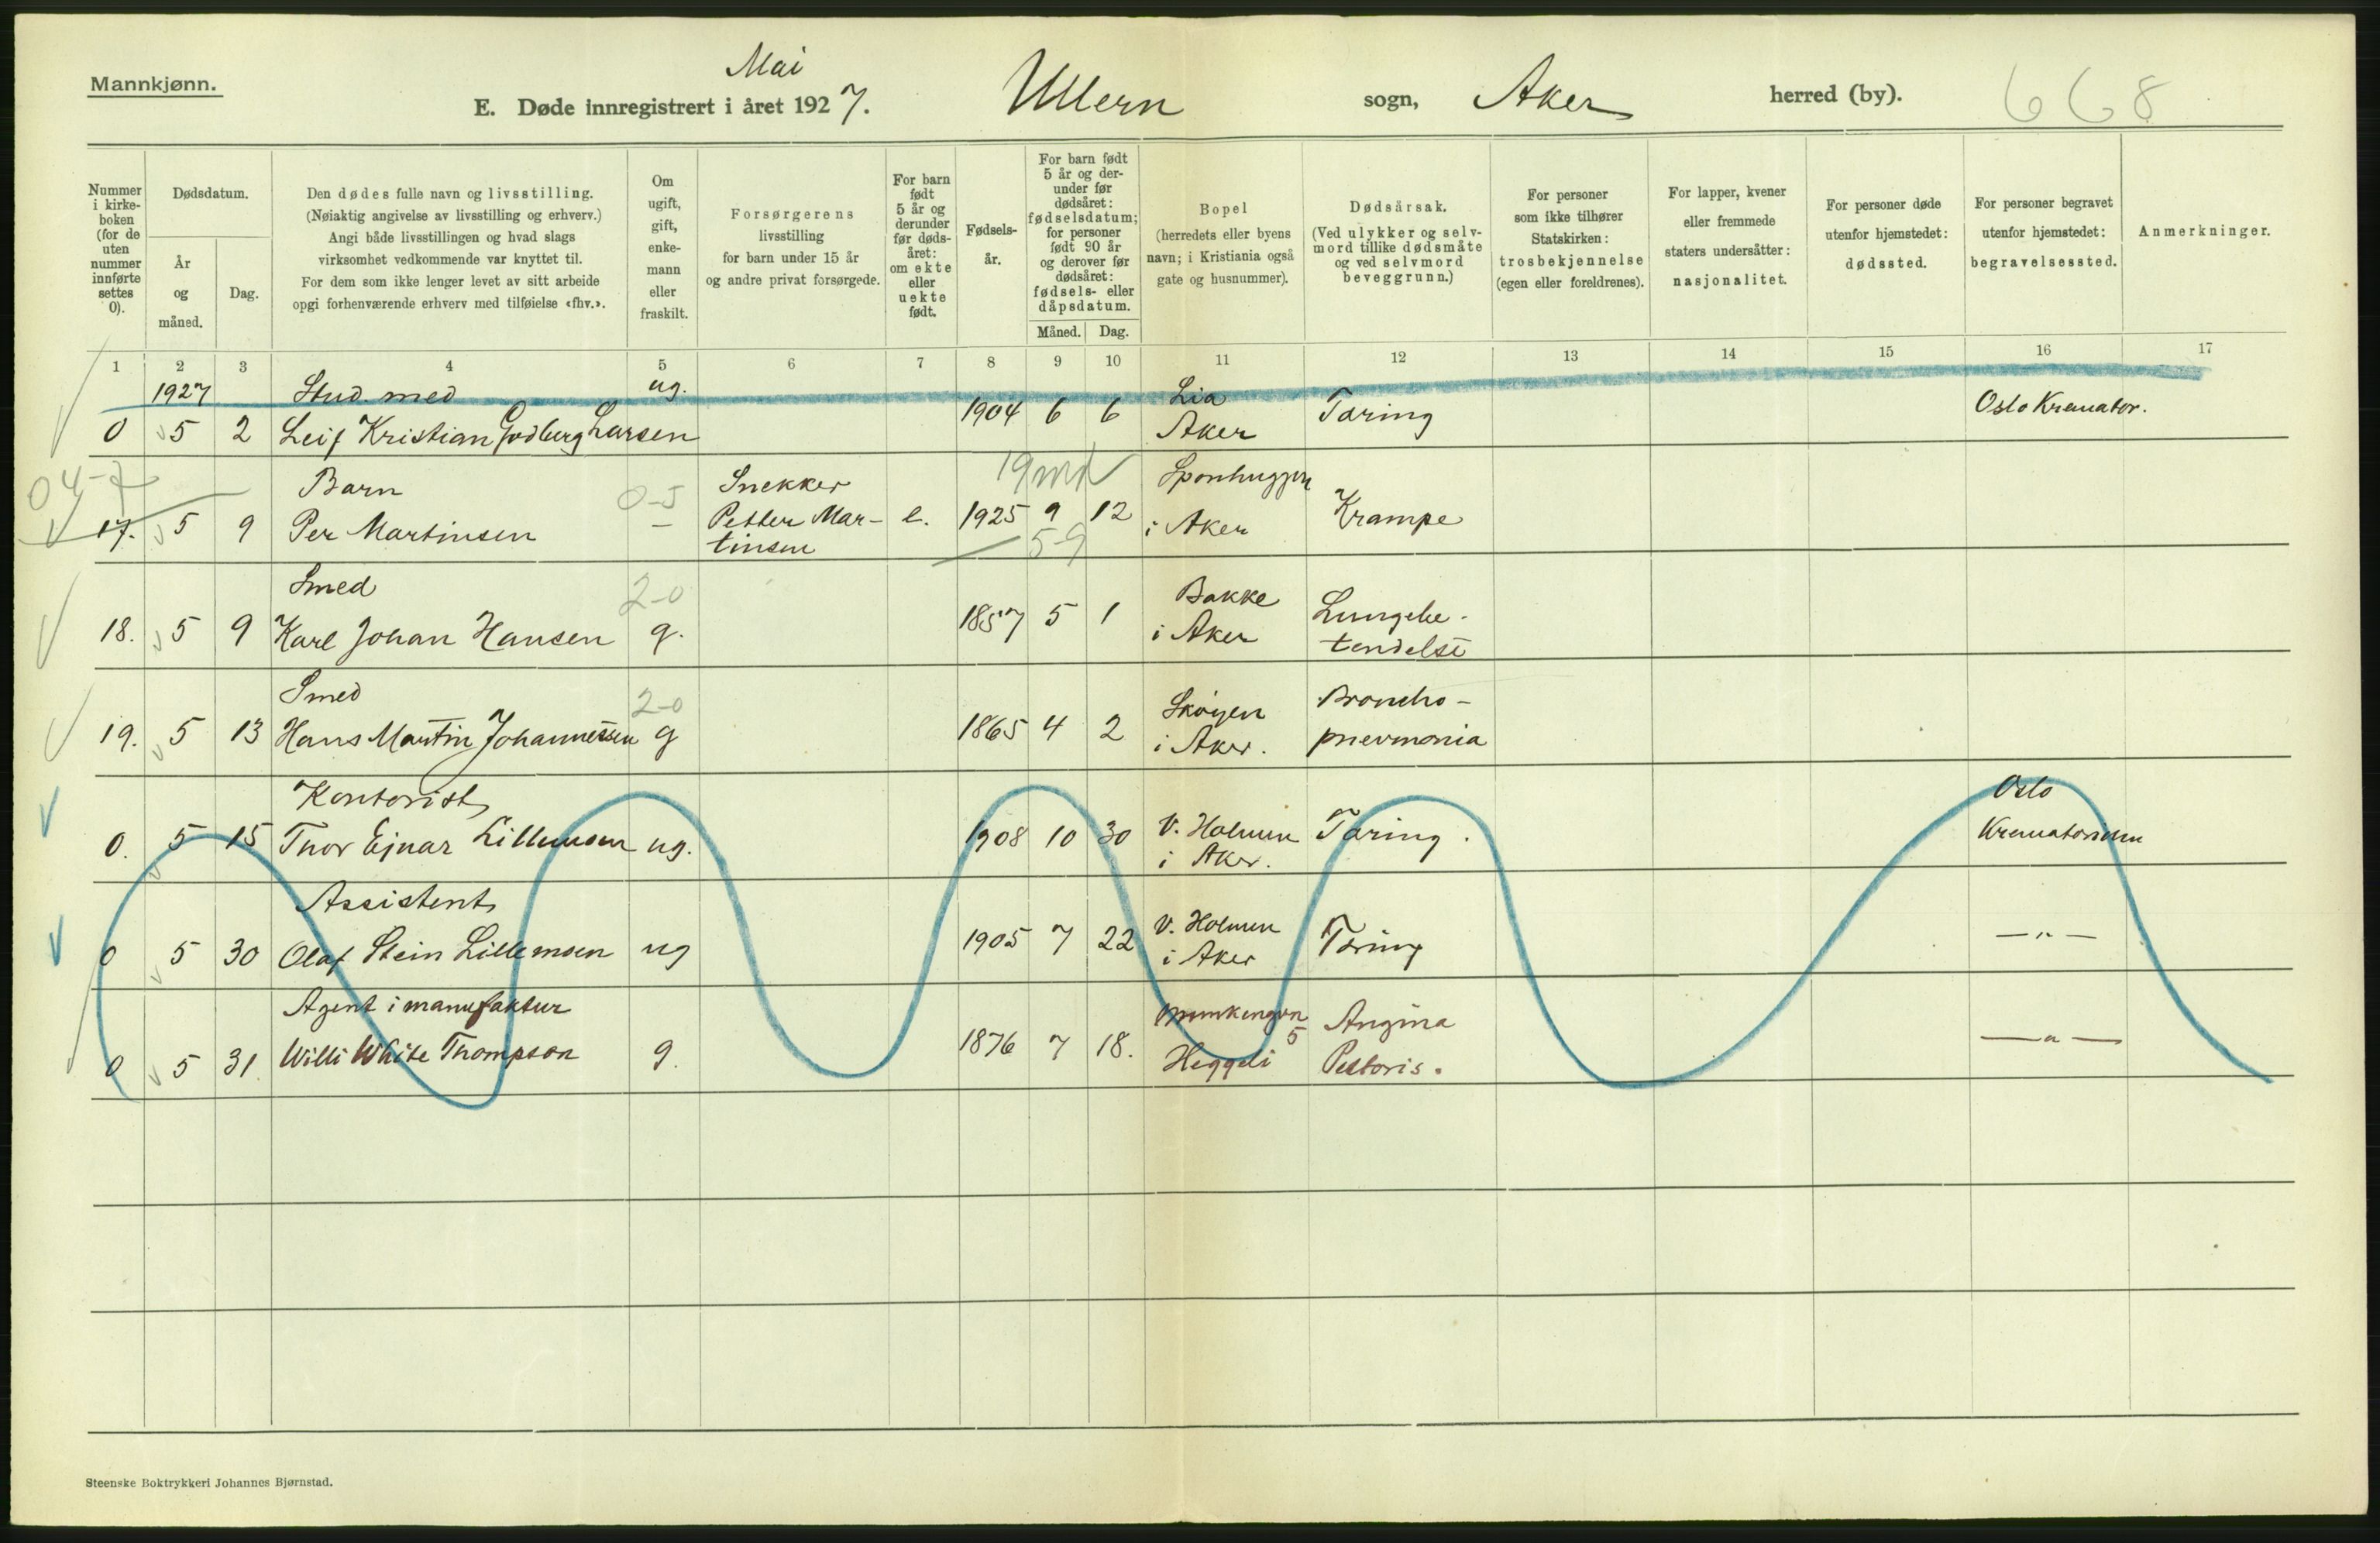 Mannkjønn.
Mai
E. Døde innregistrert i året 1927. Ullern sogn, Aker herred (by). 668
Nummer i kirke-boken (for de uten nummer innførte settes 0).
Dødsdatum.
År og måned.
Dag.
Den dødes fulle navn og livsstilling.
(Nøiaktig angivelse av livsstilling og erhverv.)
Angi både livsstillingen og hvad slags
virksomhet vedkommende var knyttet til.
For dem som ikke lenger levet av sitt arbeide
opgi forhenværende erhverv med tilføielse «fhv.».
Om ugift, gift, enke-mann eller fraskilt.
Forsørgerens
livsstilling
for barn under 15 år
og andre privat forsørgede.
For barn født 5 år og derunder før døds-året: om ekte eller uekte født.
Fødsels-år.
For barn født 5 år og der-under før dødsåret: fødselsdatum; for personer født 90 år og derover før dødsåret: fødsels- eller dåpsdatum.
Måned. Dag.
Bopel
(herredets eller byens
navn; i Kristiania også
gate og husnummer).
Dødsårsak.
(Ved ulykker og selv-
mord tillike dødsmåte
og ved selvmord
beveggrunn.)
For personer
som ikke tilhører
Statskirken:
trosbekjennelse
(egen eller foreldrenes).
For lapper, kvener
eller fremmede
staters undersåtter:
nasjonalitet.
For personer døde
utenfor hjemstedet:
dødssted.
For personer begravet
utenfor hjemstedet:
begravelsessted.
Anmerkninger.
1 2 3 4 5 6 7 8 9 10 11 12 13 14 15 16 17
1927 Stud. med ug. Lia
0 5 2 Leif Kristian Godberg Larsen 1904 6 6 Aker Tæring Oslo Kremator.
04-7 Barn 0-5 Snekker 19 md Sponhuggen
17. 5 9 Per Martinsen – Petter Mar- e. 1925 9 12 i Aker Krampe
tinsen 5-9
Smed 2-0 Bakke Lungebe-
18. 5 9 Karl Johan Hansen g. 1857 5 1 i Aker tendelse
Smed 2-0 Skøyen Broncho-
19. 5 13 Hans Martin Johannessen g 1865 4 2 i Aker. pnevmonia
Kontorist Oslo
0. 5 15 Thor Ejnar Lillemoen ug. 1908 10 30 V. Holmen i Aker. Tæring. Krematorium
Assistent
0 5 30 Olaf Stein Lillemoen ug 1905 7 22 V. Holmen i Aker Tæring —"—
Agent i manufaktur Munkengvn 5 Angina
0 5 31. Willi White Thompson g. 1876 7 18. Heggeli Pectoris. —"—
Steenske Boktrykkeri Johannes Bjørnstad.